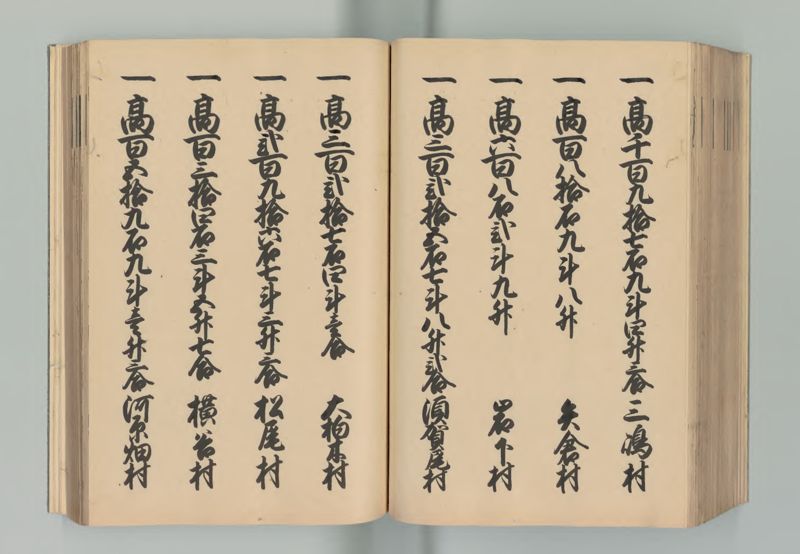 一 高千百九拾七石九斗四升三合 三嶋村
一 高百八拾石九斗八升 矢倉村
一 高六百八石弐斗九升 岩下村
一 高三百弐拾五石七斗八升弐合 須賀尾村
一 高三百弐拾七石四斗壱合 大柏木村
一 高弐百九拾六石七斗三升三合 松尾村
一 高百三拾四石三斗五升七合 横谷村
一 高百五拾九石九斗壱升三合 河原畑村